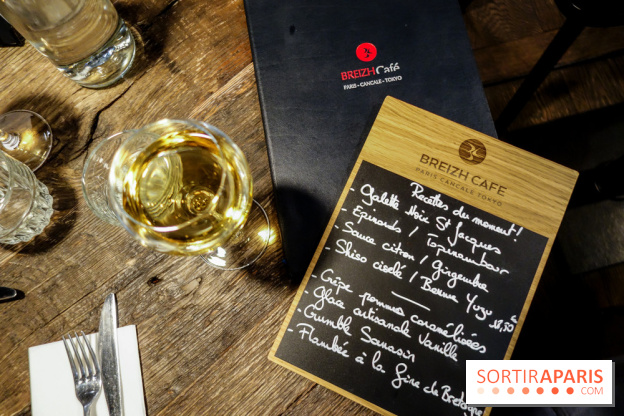 BREIZH Café
PARIS - CANCALE - TOKYO
BREIZH CAFE
PARIS CANCALE TOKYO
Recettes du moment!
- Galette Noix St Jacques
- Epinards / Topinambour
- Sauce citron / Gingembre
- Shiso ciselé / Beurre Yuzu 18,50 €
- Crêpe pommes caramélisées
- Glace artisanale Vanille
- Crumble Sarrasin
- Flambée à la fine de Bretagne
SORTIRAPARIS
.COM